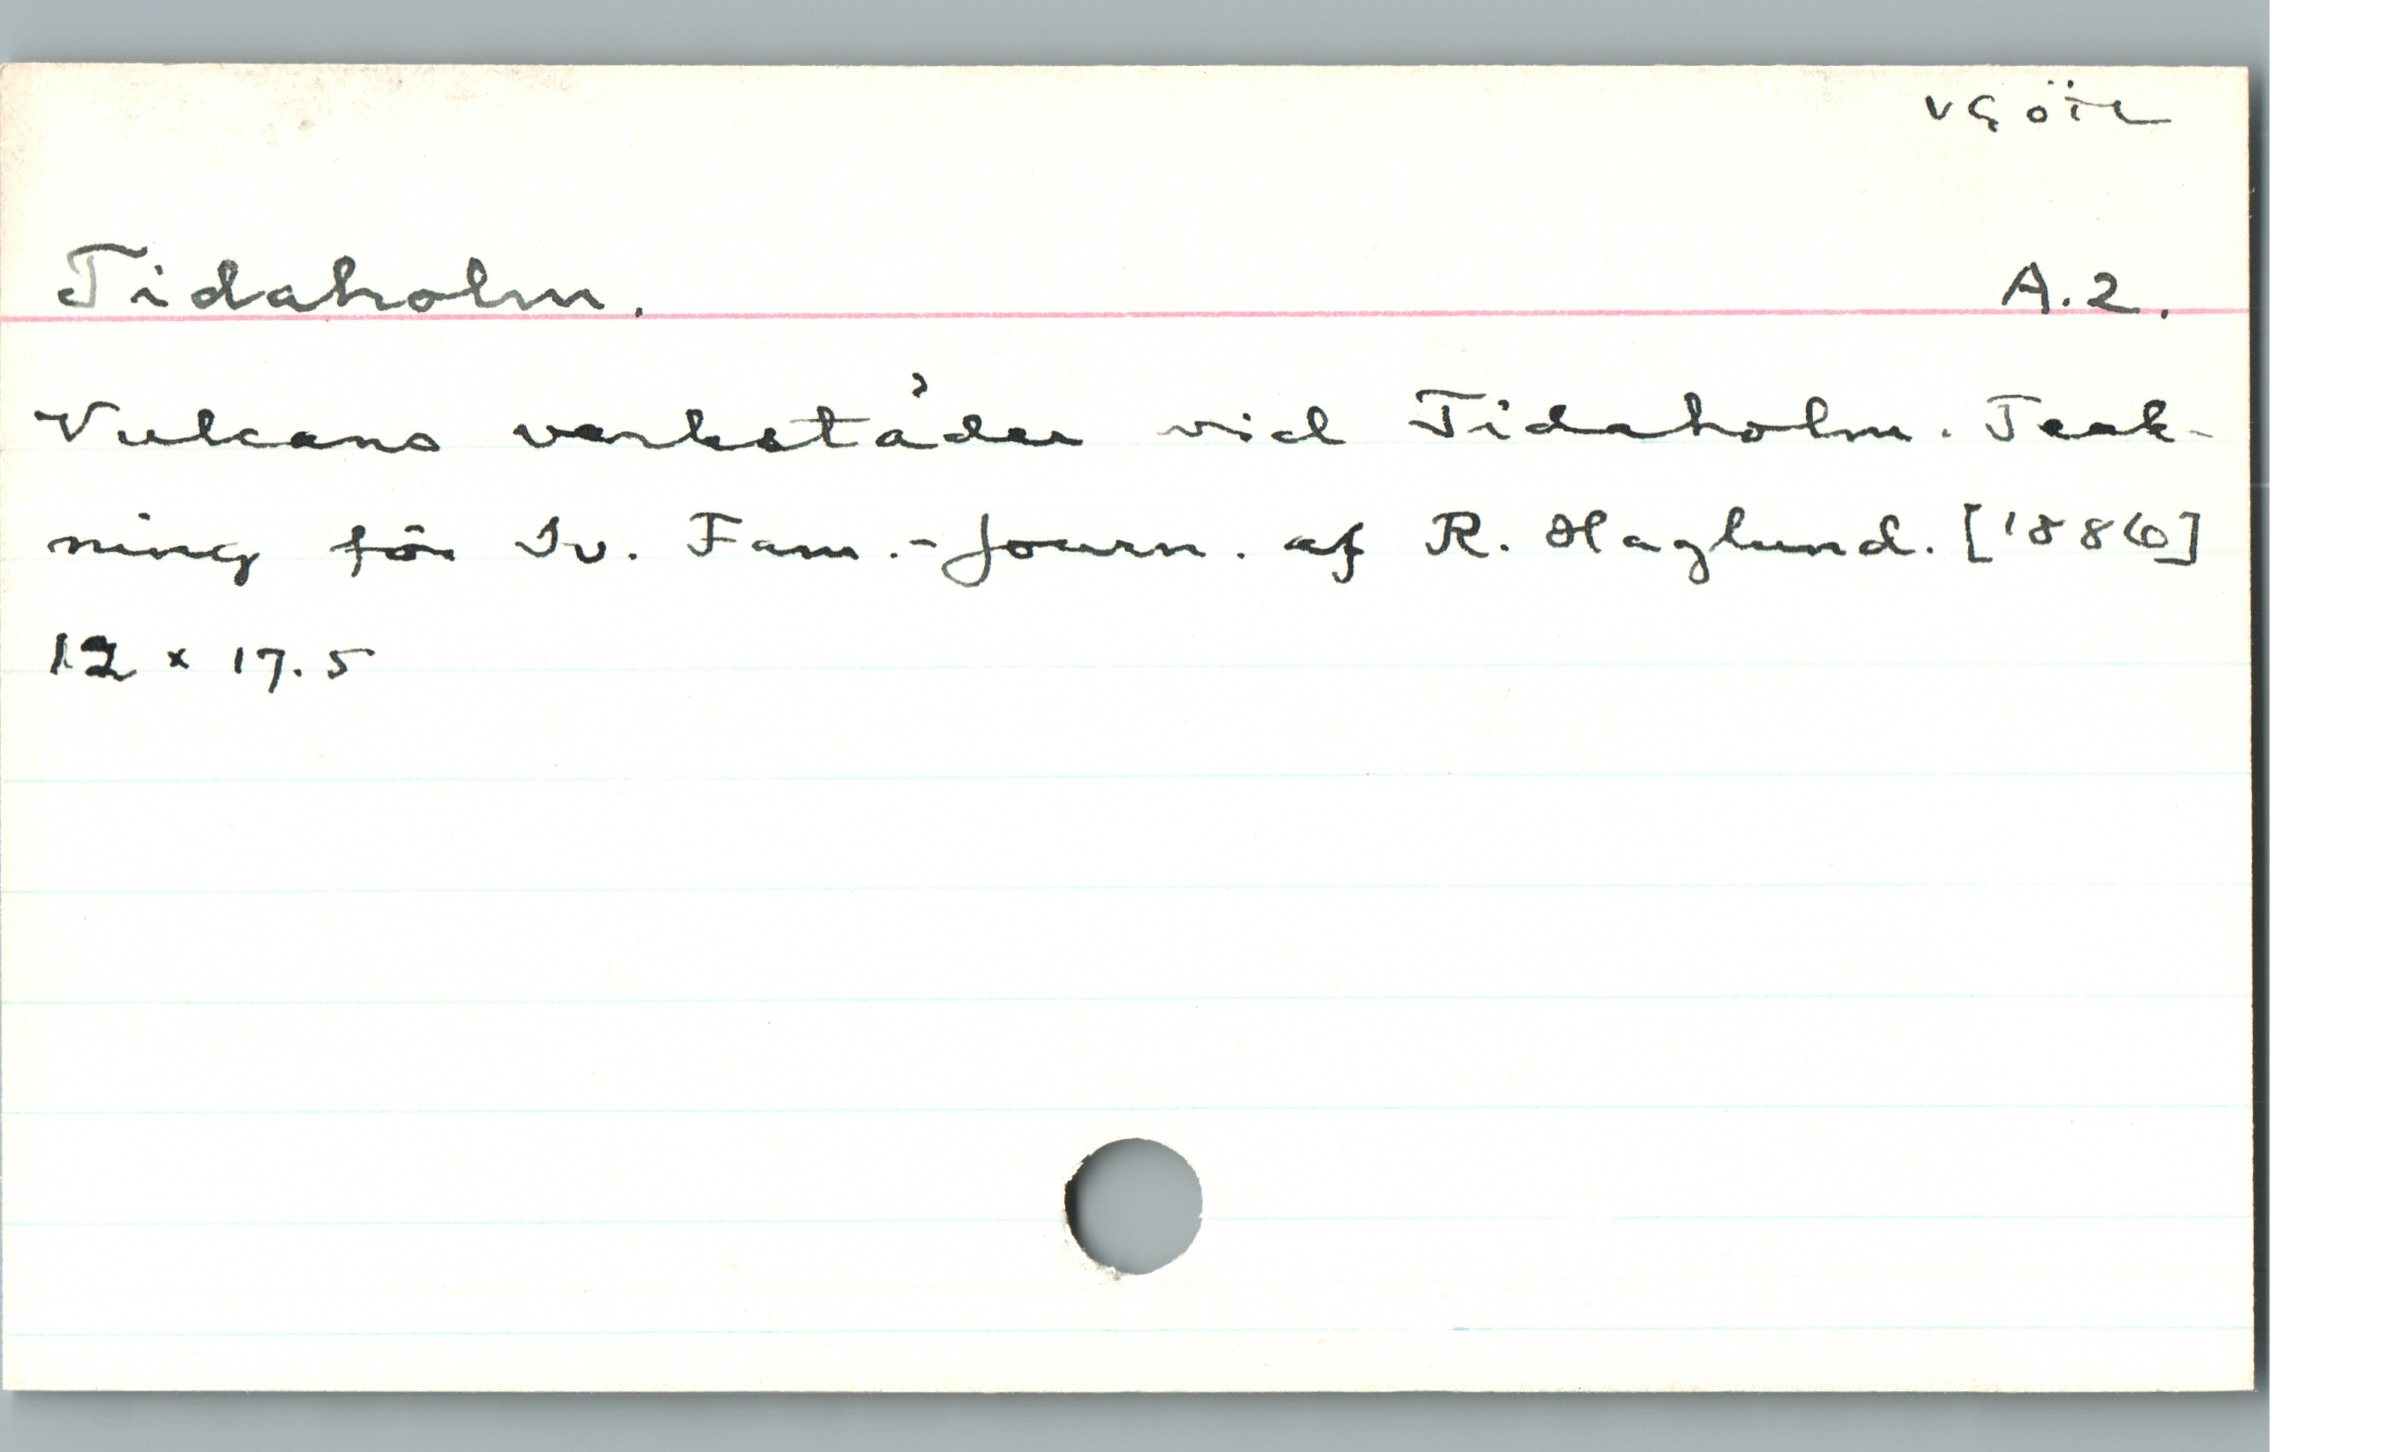 VGötl
Tidaholm. A.2.
Vulcans verkstäder vid Tidaholm. Teck-
ning för Sv. Fam.-Journ. af R. Haglund. [1880]
12 x 17.5